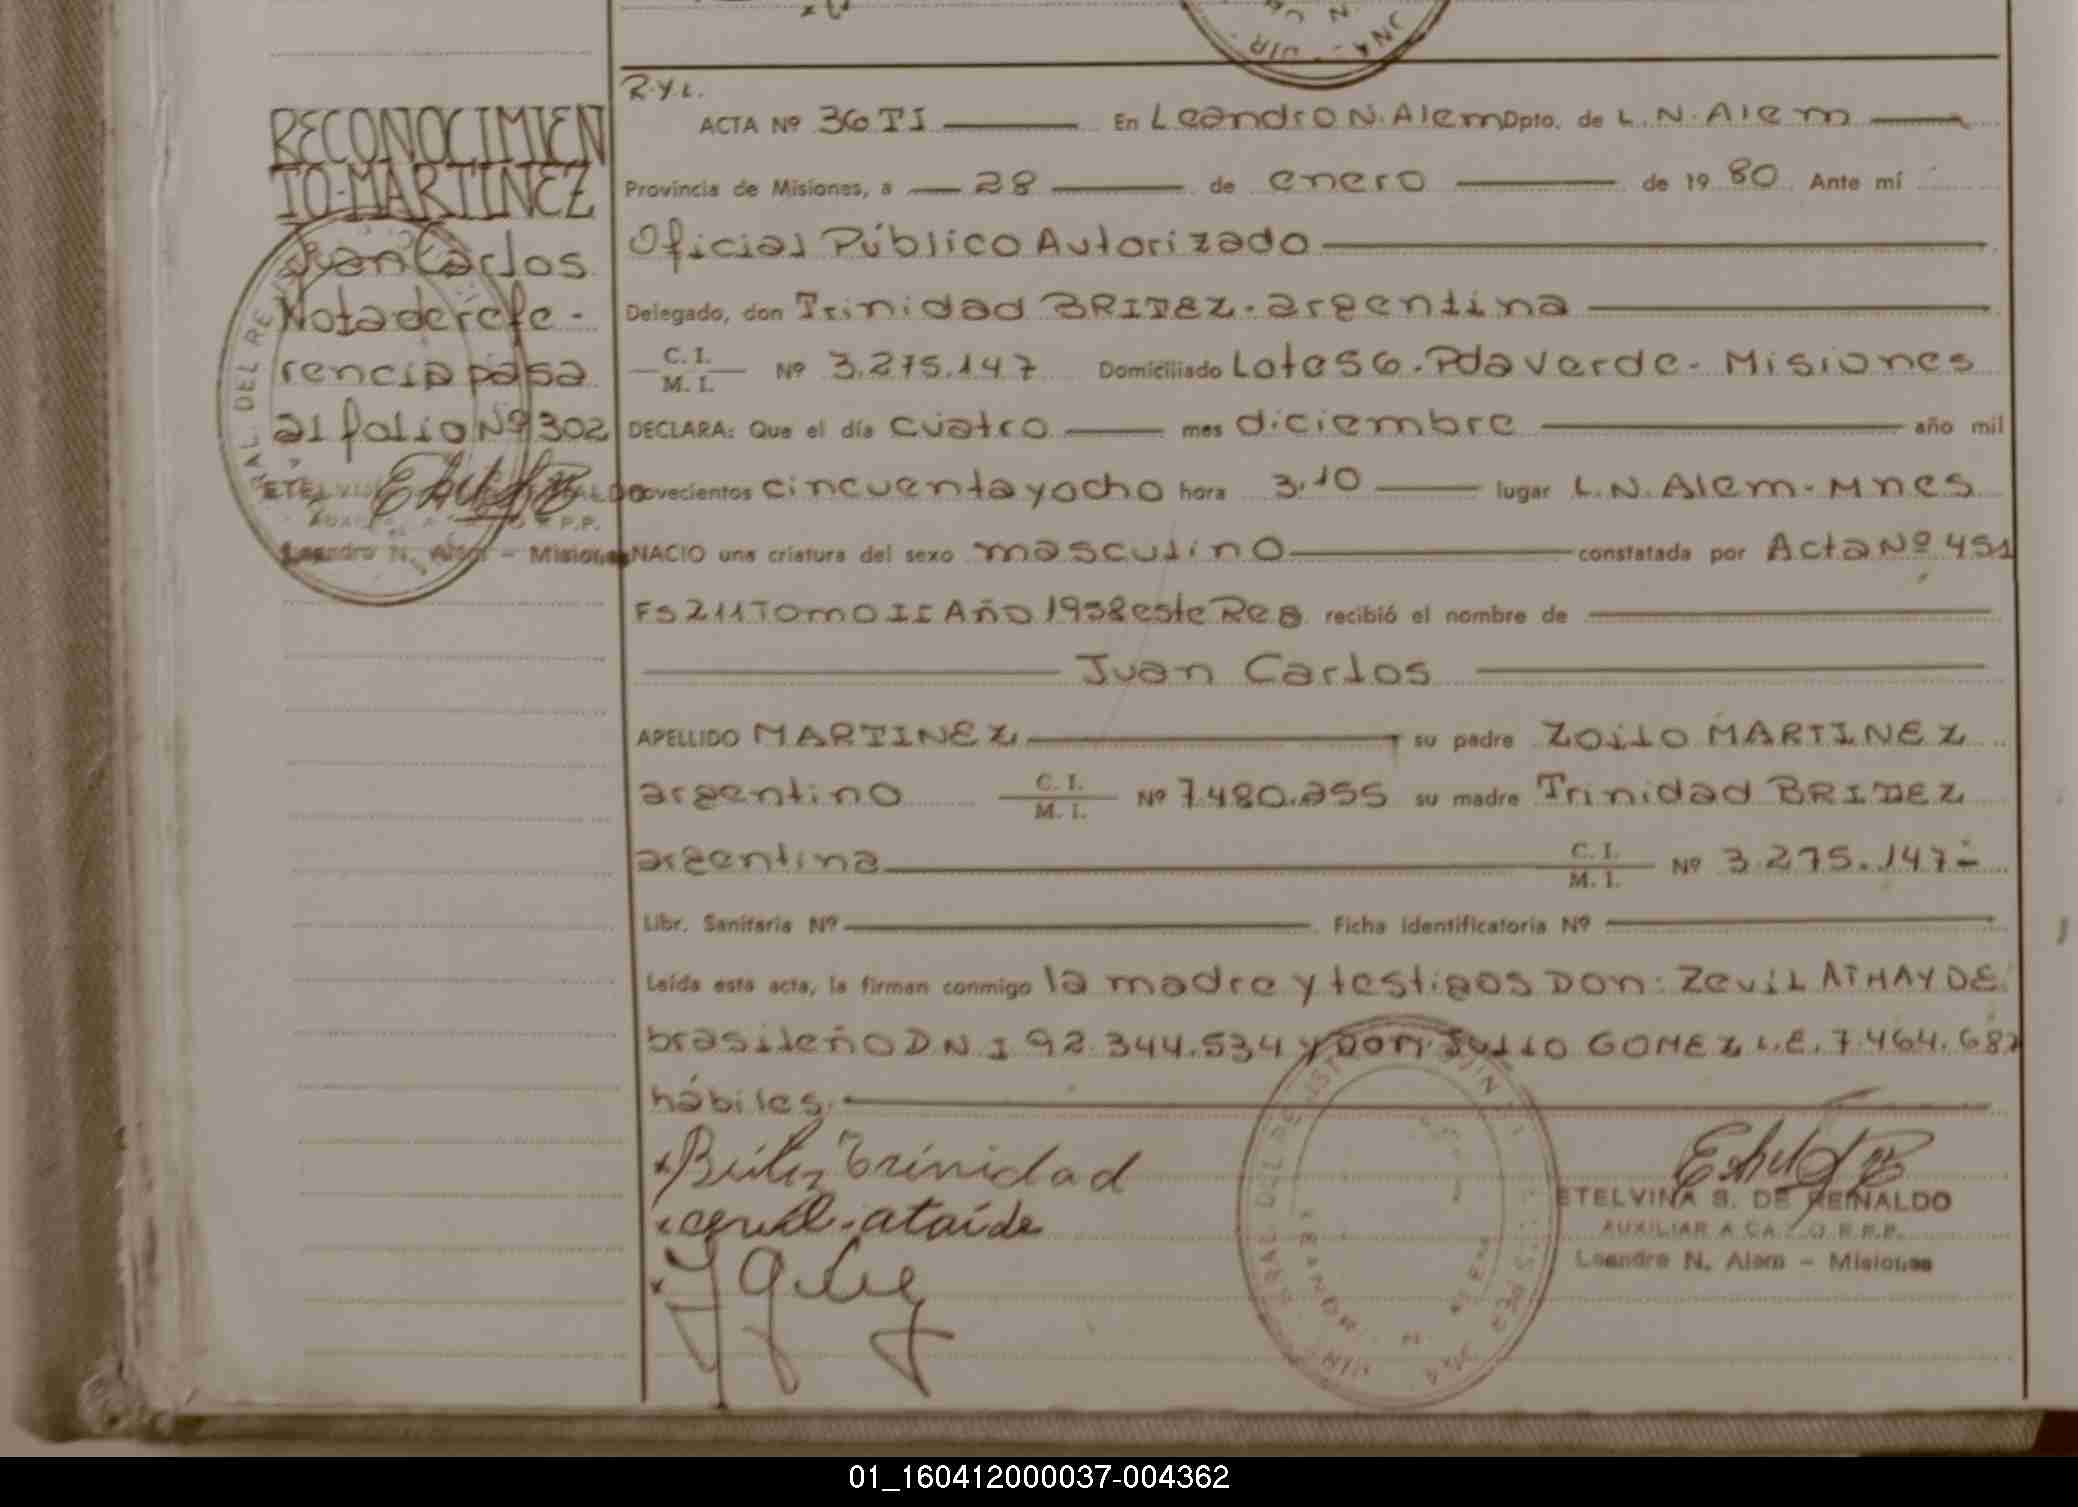 RECONOCIMIEN
TO-MARTINEZ
Juan Carlos
Nota de refe-
rencia pasa
al folio Nº 302
Leandro N. Alem - Misiones
R.Y.L.
ACTA Nº 36 TI En Leandro N. Alem Dpto. de L.N. Alem
Provincia de Misiones, a 28 de enero de 19 80 Ante mí
Oficial Público Autorizado
Delegado, don Trinidad BRITEZ. argentina
C.I. / M.I. Nº 3.275.147 Domiciliado Lote 56. Pda Verde- Misiones
DECLARA: Que el día cuatro mes diciembre año mil
novecientos cincuenta y ocho hora 3.10 lugar L.N. Alem. Mnes
NACIO una criatura del sexo masculino constatada por Acta Nº 451
Fs 211 Tomo II Año 1958 este Reg recibió el nombre de
Juan Carlos
APELLIDO MARTINEZ su padre Zoilo MARTINEZ
argentino C.I. / M.I. Nº 7.480.255 su madre Trinidad BRITEZ
argentina C.I. / M.I. Nº 3.275.147-
Libr. Sanitaria Nº Ficha Identificatoria Nº
Leída esta acta, la firman conmigo la madre y testigos Don: Zevil ATHAYDE
brasileño D.N.I 92.344.534 y DON: Julio GOMEZ L.E. 7.464.687
hábiles.
Trinidad
ataíde
ETELVINA S. DE REINALDO
AUXILIAR A CARGO R.P.P.
Leandro N. Alem - Misiones
01_160412000037-004362